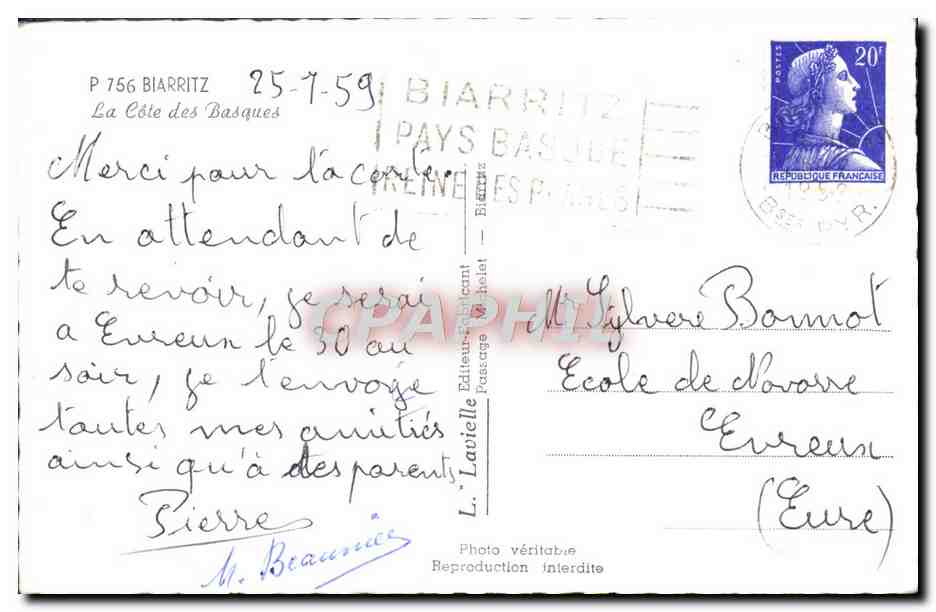 P 756 BIARRITZ
La Côte des Basques
25-7-59
BIARRITZ
PAYS BASQUE
REINE DES PLAGES
POSTES
20F
REPUBLIQUE FRANÇAISE
195
BSES PYR.
Merci pour ta carte.
En attendant de
te revoir, je serai
a Evreux le 30 au
soir, je t'envoye
toutes mes amitiés
ainsi qu'à tes parents
Pierre
M. Beaunier
L. Lavielle Editeur-Fabricant
Passage Michelet - Biarritz
CPAPHIL
Mr Sylvere Bonnot
Ecole de Navarre
Evreux
(Eure)
Photo véritable
Reproduction interdite